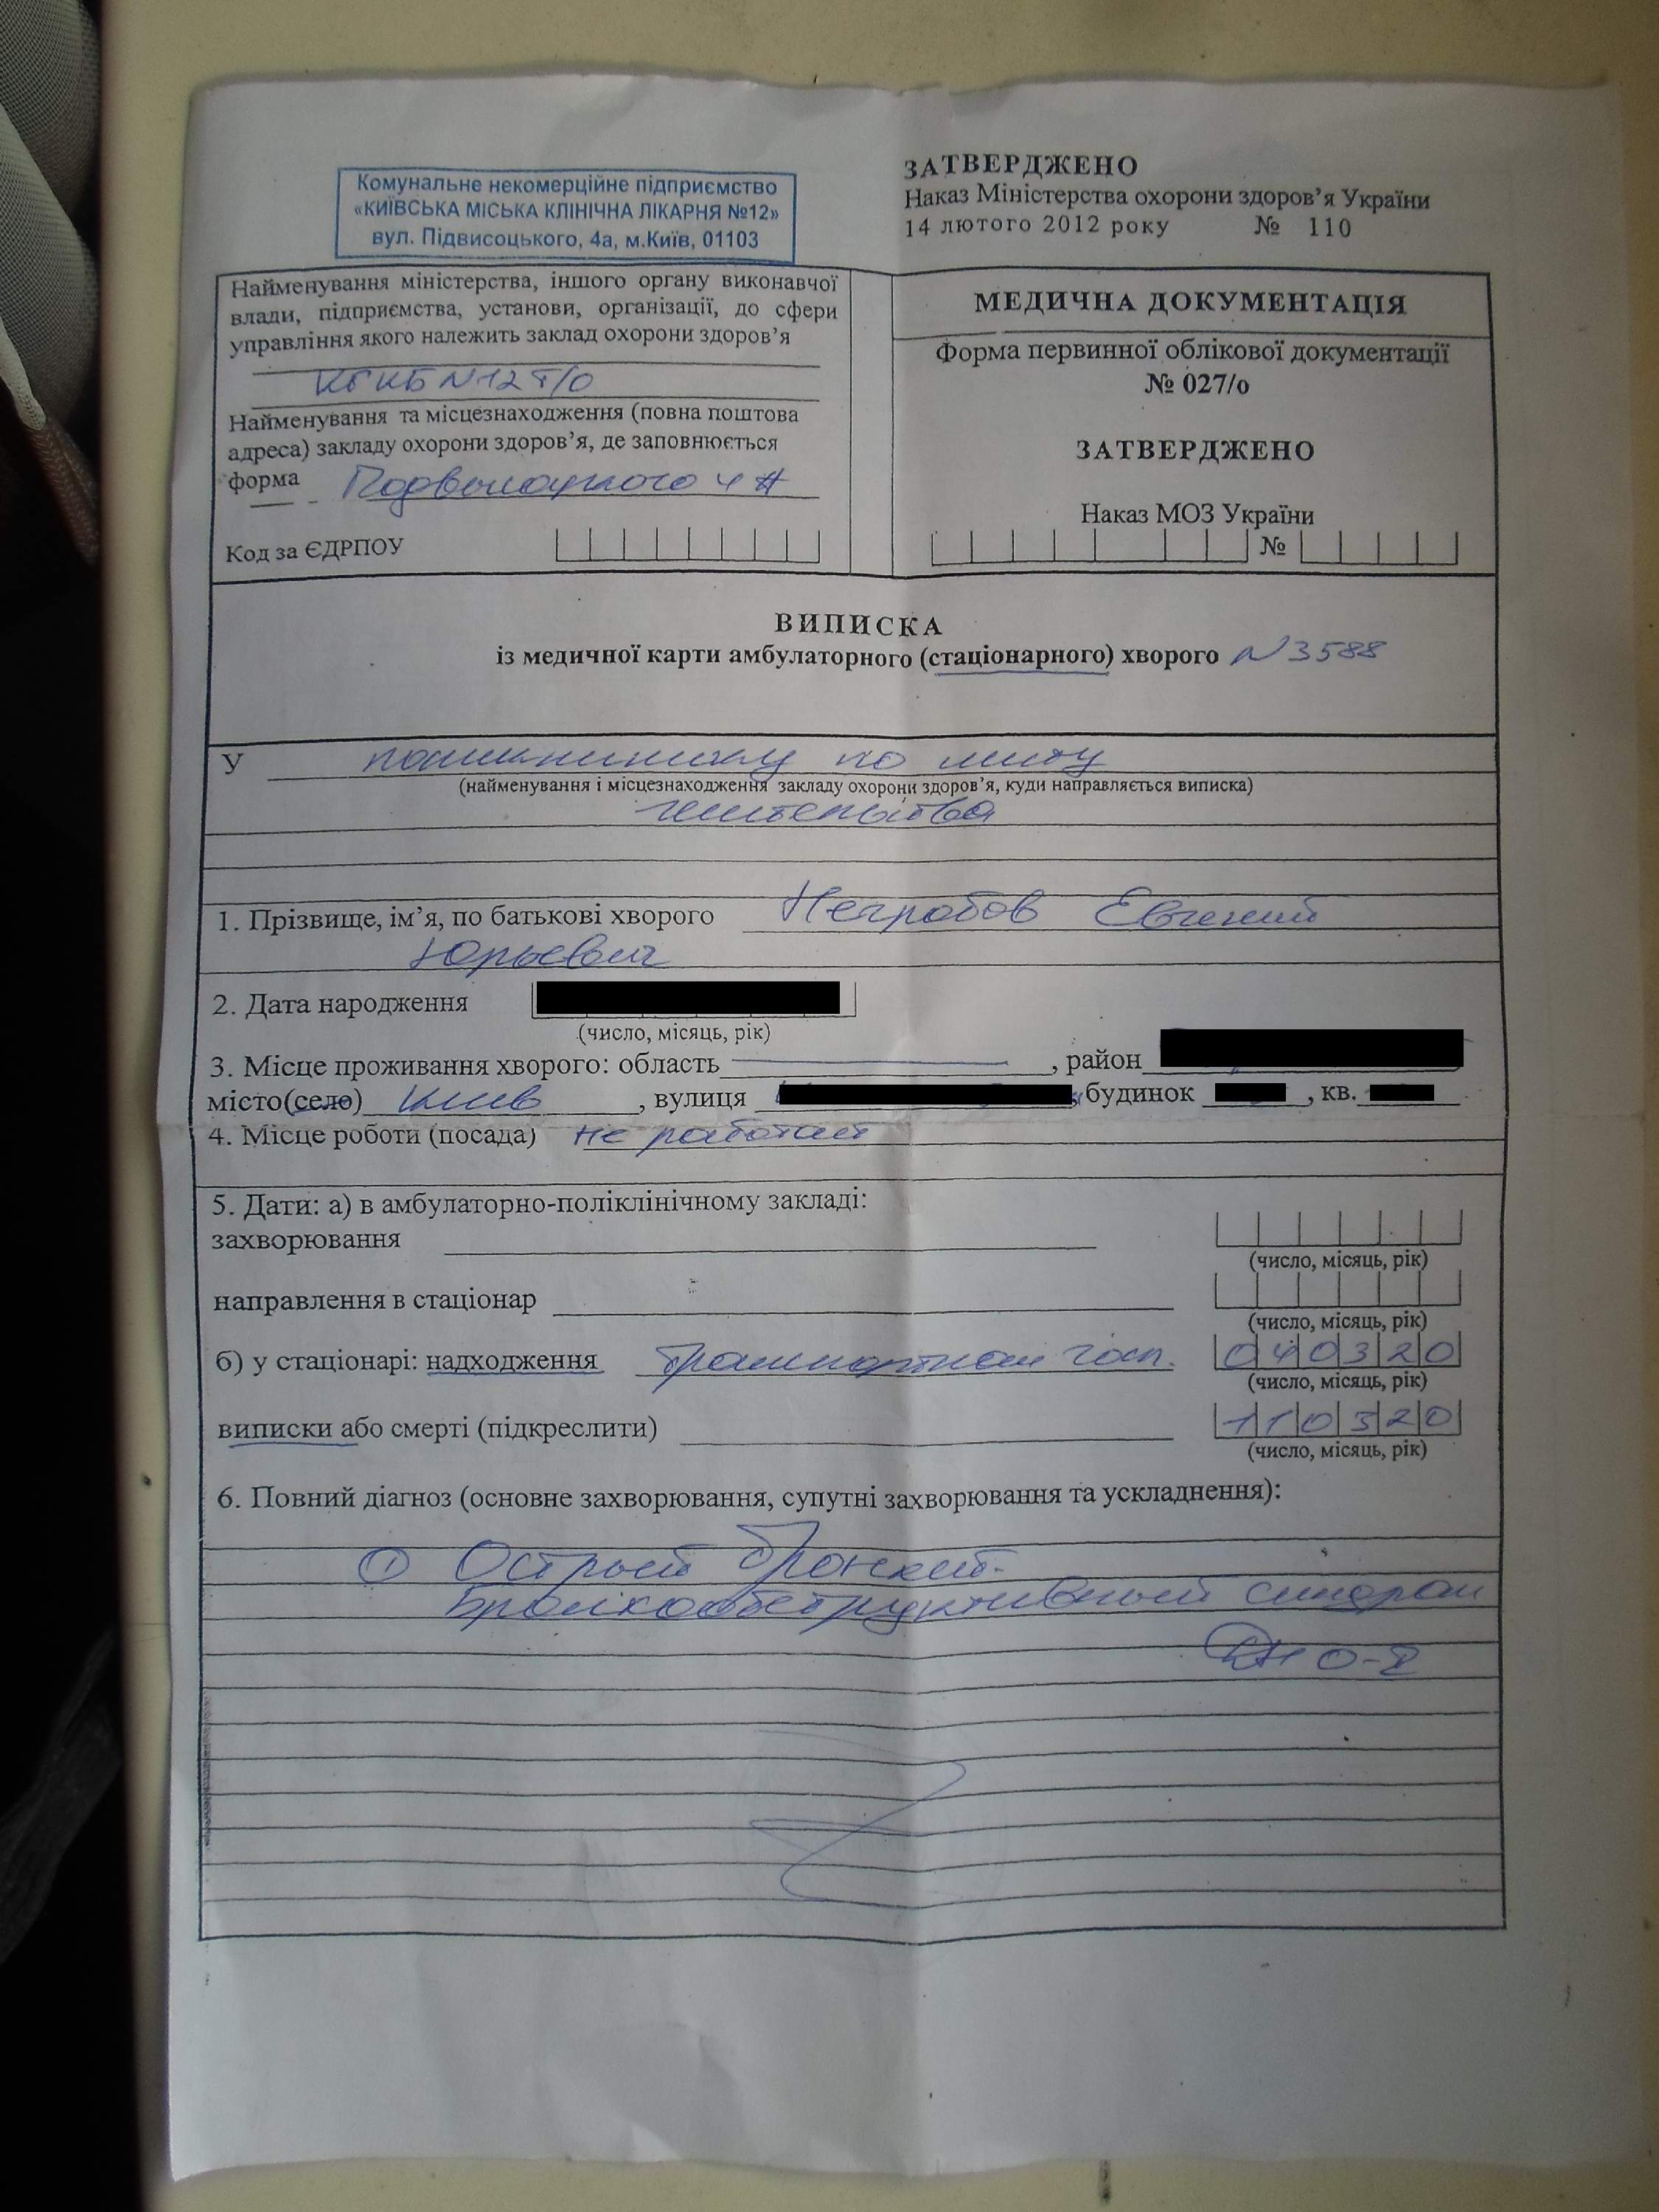 Комунальне некомерційне підприємство
«КИЇВСЬКА МІСЬКА КЛІНІЧНА ЛІКАРНЯ №12»
вул. Підвисоцького, 4а, м.Київ, 01103
ЗАТВЕРДЖЕНО
Наказ Міністерства охорони здоров’я України
14 лютого 2012 року № 110
Найменування міністерства, іншого органу виконавчої
влади, підприємства, установи, організації, до сфери
управління якого належить заклад охорони здоров’я
КГКБ N12 т/о
Найменування та місцезнаходження (повна поштова
адреса) закладу охорони здоров’я, де заповнюється
форма Подвысоцкого 4
Код за ЄДРПОУ
МЕДИЧНА ДОКУМЕНТАЦІЯ
Форма первинної облікової документації
№ 027/о
ЗАТВЕРДЖЕНО
Наказ МОЗ України
№
ВИПИСКА
із медичної карти амбулаторного (стаціонарного) хворого N3588
У поликлинику по месту
(найменування і місцезнаходження закладу охорони здоров’я, куди направляється виписка)
жительства
1. Прізвище, ім’я, по батькові хворого Негробов Евгений
Юрьевич
2. Дата народження
(число, місяць, рік)
3. Місце проживання хворого: область , район
місто(село) Киев , вулиця , будинок , кв.
4. Місце роботи (посада) не работает
5. Дати: а) в амбулаторно-поліклінічному закладі:
захворювання
(число, місяць, рік)
направлення в стаціонар
(число, місяць, рік)
б) у стаціонарі: надходження госп. 040320
(число, місяць, рік)
виписки або смерті (підкреслити) 110320
(число, місяць, рік)
6. Повний діагноз (основне захворювання, супутні захворювання та ускладнення):
① Острый бронхит.
Бронхообструктивный синдром
ДН 0-I